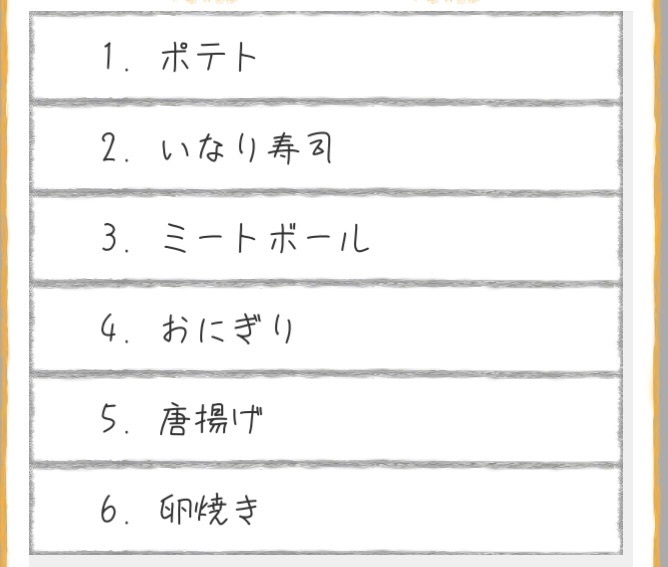 1. ポテト
2. いなり寿司
3. ミートボール
4. おにぎり
5. 唐揚げ
6. 卵焼き